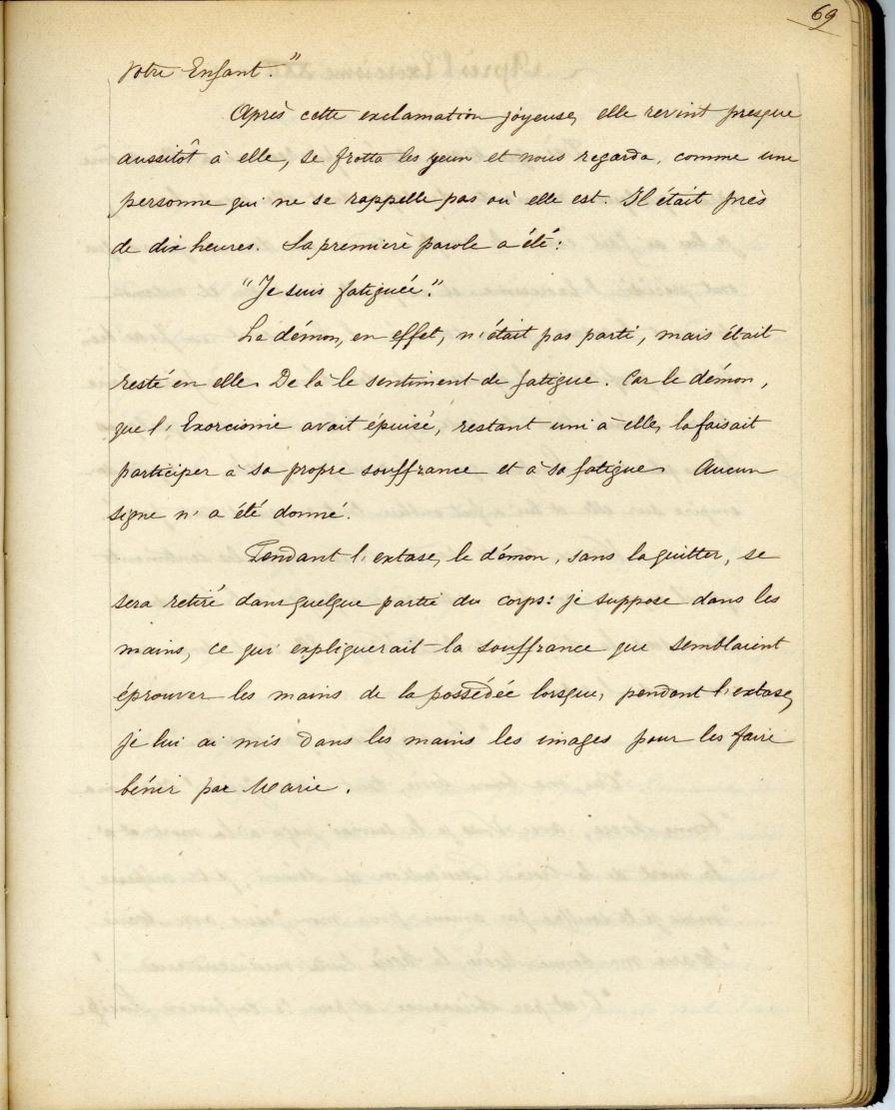 69
votre Enfant."
Après cette exclamation joyeuse, elle revint presque
aussitôt à elle, se frotta les yeux et nous regarda, comme une
personne qui ne se rappelle pas où elle est. Il était près
de dix heures. Sa première parole a été:
"Je suis fatiguée."
Le démon, en effet, n'était pas parti, mais était
resté en elle. De là le sentiment de fatigue. Car le démon,
que l'Exorcisme avait épuisé, restant uni à elle, la faisait
participer à sa propre souffrance et à sa fatigue. Aucun
signe n'a été donné.
Pendant l'extase, le démon, sans la quitter, se
sera retiré dans quelque partie du corps: je suppose dans les
mains, ce qui expliquerait la souffrance que semblaient
éprouver les mains de la possédée lorsque, pendant l'extase,
je lui ai mis dans les mains les images pour les faire
bénir par Marie.